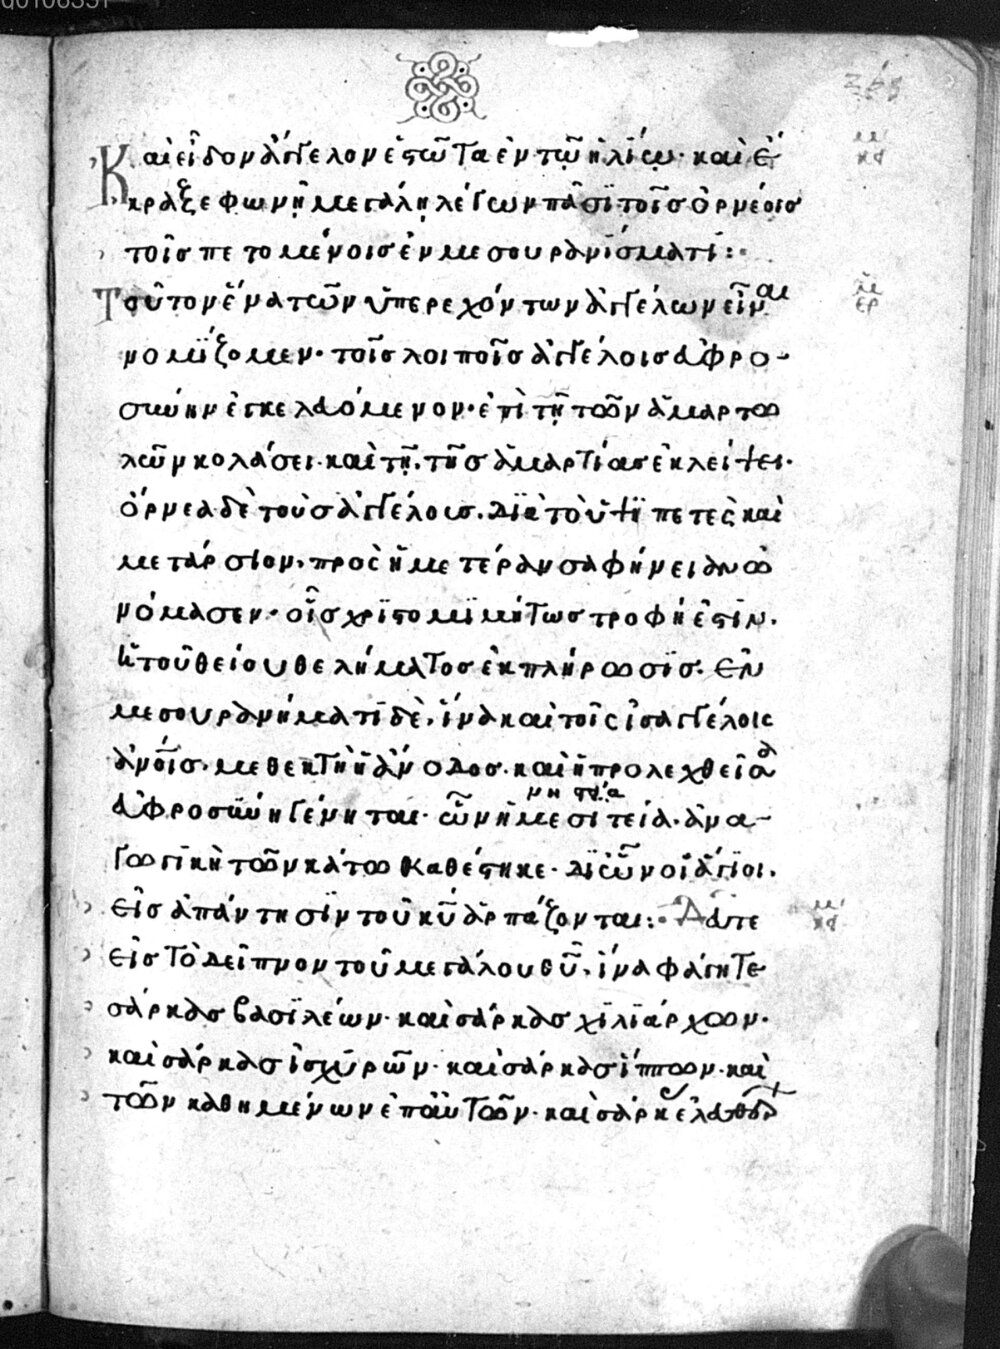 Καὶ εἶδον ἄγγελον ἑστῶτα ἐν τῷ ἡλίῳ· καὶ ἔ
κραξε φωνῇ μεγάλῃ λέγων πᾶσϊ τοῖσ ὀρνέοισ
τοῖσ πετομένοισ ἐν μεσουρανίσματι:·
Τοῦτον ἕνα τῶν ὑπερεχόντων ἀγγέλων εἶναι
νομΐζομεν· τοῖσ λοιποῖσ ἀγγέλοισ ἀφρο-
σύνην ἐγκελαόμενον· ἐπὶ τῇ τῶν ἁμαρτω
λῶν κολάσει· καὶ τῇ τῆσ ἁμαρτίασ ἐκλείψει·
ὄρνεα δὲ τοὺσ ἀγγέλουσ. διὰ τὸ ὑψϊπετὲς καὶ
μετάρσιον· πρὸς ἡμετέραν σαφήνειαν ὠ
νόμασεν· οἷσ χριστομϊμήτωσ τροφή ἐστϊν·
ἡ τοῦ θείου θελήματοσ ἐκπλήρωσϊσ· ἐν
μεσουρανήματϊ δὲ, ἵνα καὶ τοῖς ἰσαγγέλοις
ἀνοῖσ· μεθεκτὴ ἡ ἄνοδοσ· καὶ ἡ προλεχθεῖσα
ἀφροσύνη γένηται· ὧν ἡ μεσιτεία· ἀνα-
γωγϊκὴ τῶν κάτω καθέστηκε· δι ὧν οἱ ἅγϊοι·
εἰσ ἀπάντησϊν τοῦ κῦ ἁρπάζονται:· Δεῦτε
εἰσ τὸ δεῖπνον τοῦ μεγάλου θῦ, ἵνα φάγητε
σάρκασ βασϊλέων· καὶ σάρκασ χϊλϊάρχων·
καὶ σάρκασ ἰσχυρῶν· καὶ σάρκασ ἵππων· καὶ
τῶν καθημένων ἐπ αὐτῶν· καὶ σάρκ ἐλευθέρ